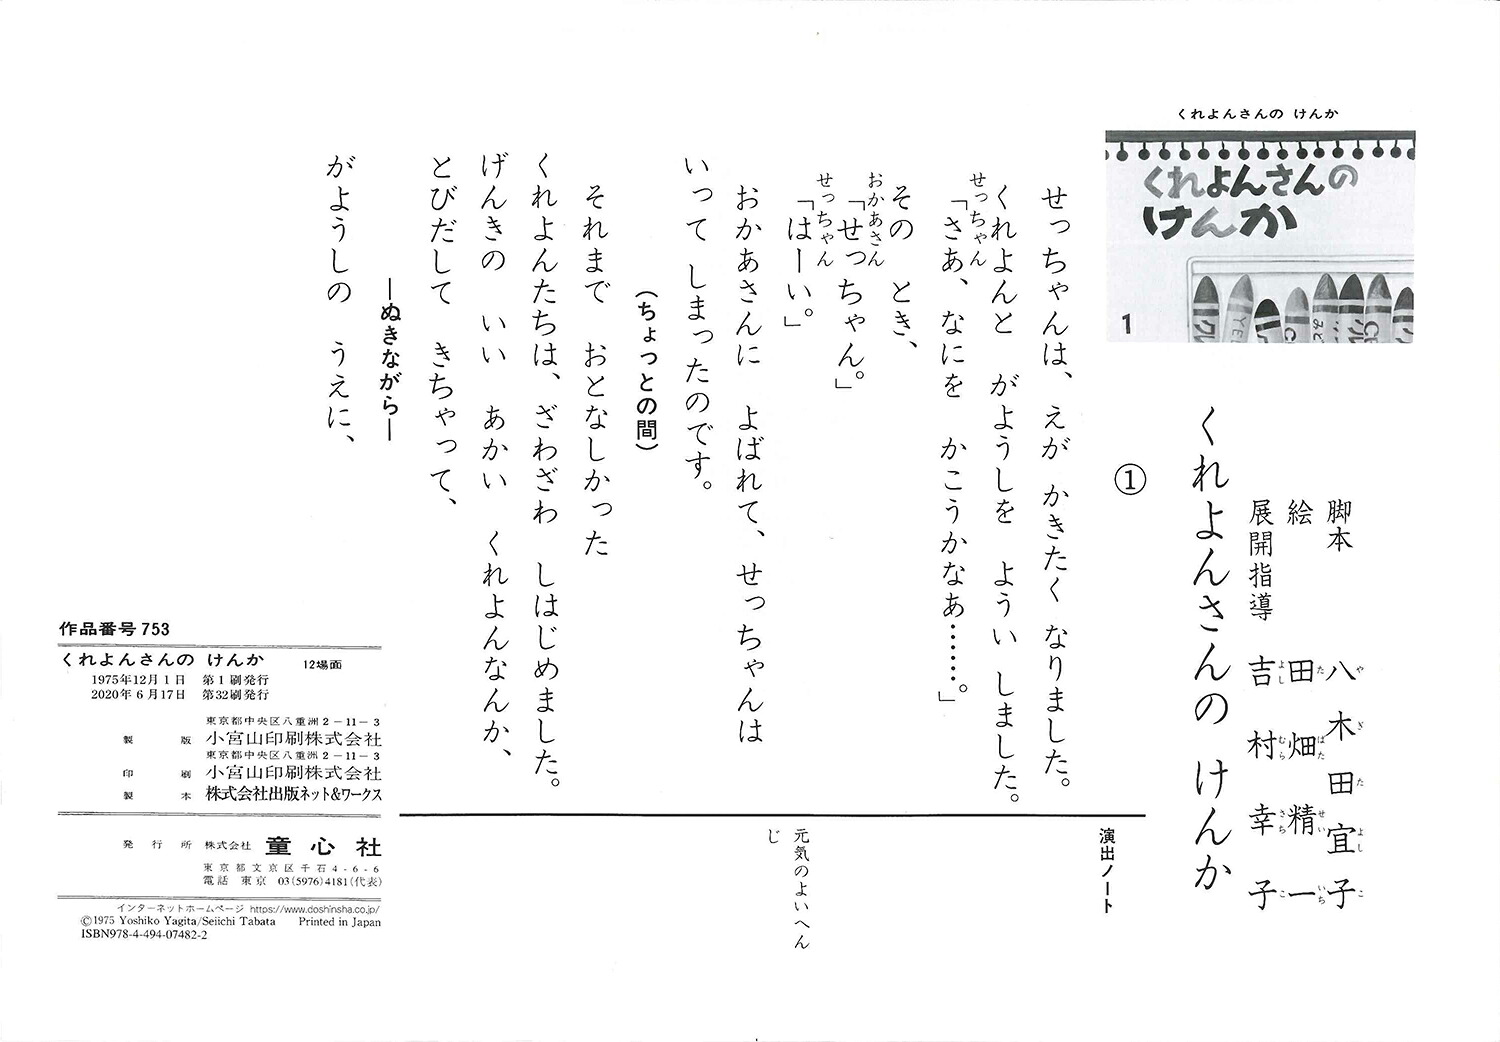 くれよんさんの けんか
くれよんさんの
けんか
1
くれよんさんの けんか
脚本 八木田宜子
やぎたよしこ
絵 田畑精一
たばたせいいち
展開指導 吉村幸子
よしむらさちこ
①
せっちゃんは、えが かきたく なりました。
くれよんと がようしを ようい しました。
せっちゃん
「さあ、なにを かこうかなあ……。」
その とき、
おかあさん
「せっちゃん。」
せっちゃん
「はーい。」
おかあさんに よばれて、せっちゃんは
いって しまったのです。
(ちょっとの間)
それまで おとなしかった
くれよんたちは、ざわざわ しはじめました。
げんきの いい あかい くれよんなんか、
とびだして きちゃって、
―ぬきながら―
がようしの うえに、
演出ノート
元気のよいへん
じ
作品番号 753
くれよんさんの けんか 12場面
1975年12月1日 第1刷発行
2020年6月17日 第32刷発行
東京都中央区八重洲2-11-3
製版 小宮山印刷株式会社
東京都中央区八重洲2-11-3
印刷 小宮山印刷株式会社
製本 株式会社出版ネット&ワークス
発行所 株式会社 童心社
東京都文京区千石4-6-6
電話 東京 03(5976)4181(代表)
インターネットホームページ https://www.doshinsha.co.jp/
©1975 Yoshiko Yagita/Seiichi Tabata Printed in Japan
ISBN978-4-494-07482-2